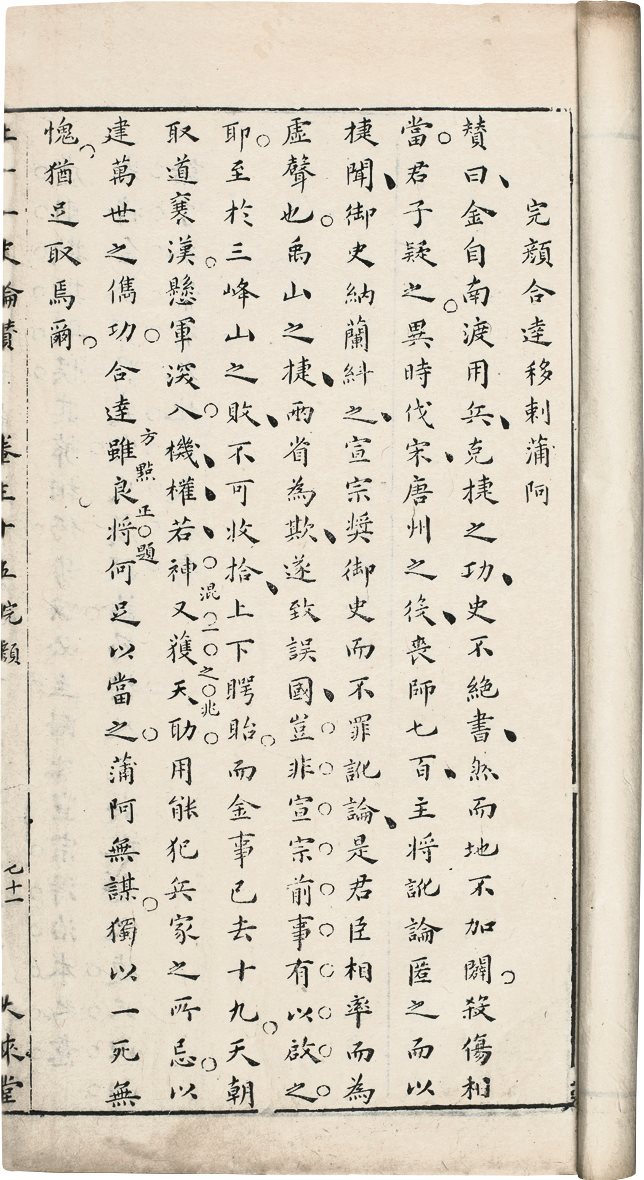 完顏合達移剌蒲阿
贊曰金自南渡用兵克捷之功史不絕書然而地不加闢殺傷相
當君子疑之異時伐宋唐州之役喪師七百主將訛論匿之而以
捷聞御史納蘭糾之宣宗奬御史而不罪訛論是君臣相率而為
虛聲也禹山之捷兩省為欺遂致誤國豈非宣宗前事有以啟之
耶至於三峰山之敗不可收拾上下𥈭眙而金事已去十九天朝
取道襄漢懸軍深入機權若神又獲天助用能犯兵家之所忌以
混一之兆
建萬世之儁功合達雖良將何足以當之蒲阿無謀獨以一死無
方點正題
愧猶足取焉爾
史論贊 卷三十五 完顏 七十一 大來堂